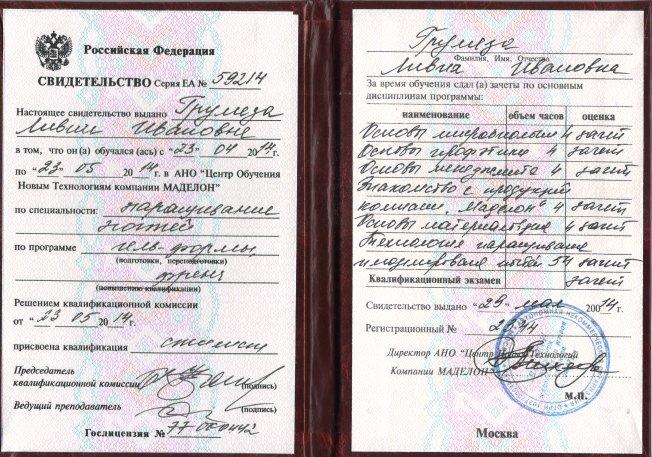 Российская Федерация
СВИДЕТЕЛЬСТВО Серия ЕА № 59214
Настоящее свидетельство выдано Грумеза
Ливии Ивановне
в том, что он(а) обучался (ась) с "23" 04 2014г.
по "23" 05 2014г. в АНО "Центр Обучения
Новым Технологиям компании МАДЕЛОН"
по специальности: наращивание
ногтей
по программе гель-формы,
(подготовки, переподготовки)
френч
(повышение квалификации)
Решением квалификационной комиссии
от "23" 05 2014г.
присвоена квалификация
Председатель
квалификационной комиссии (подпись)
Ведущий преподаватель (подпись)
Гослицензия № 77 000442
Грумеза
Фамилия, Имя, Отчество
Ливия Ивановна
За время обучения сдал (а) зачеты по основным
дисциплинам программы:
наименование объем часов оценка
Основы микробиологии 4 зачет
Основы 4 зачет
Основы менеджмента 4 зачет
Знакомство с продукцией
компании "Маделон" 4 зачет
Основы 4 зачет
Технология наращивания
и моделирования ногтей 54 зачет
Квалификационный экзамен зачет
Свидетельство выдано "29" мая 2014г.
Регистрационный №
Директор АНО "Центр Новых Технологий
Компании МАДЕЛОН"
М.П.
Москва